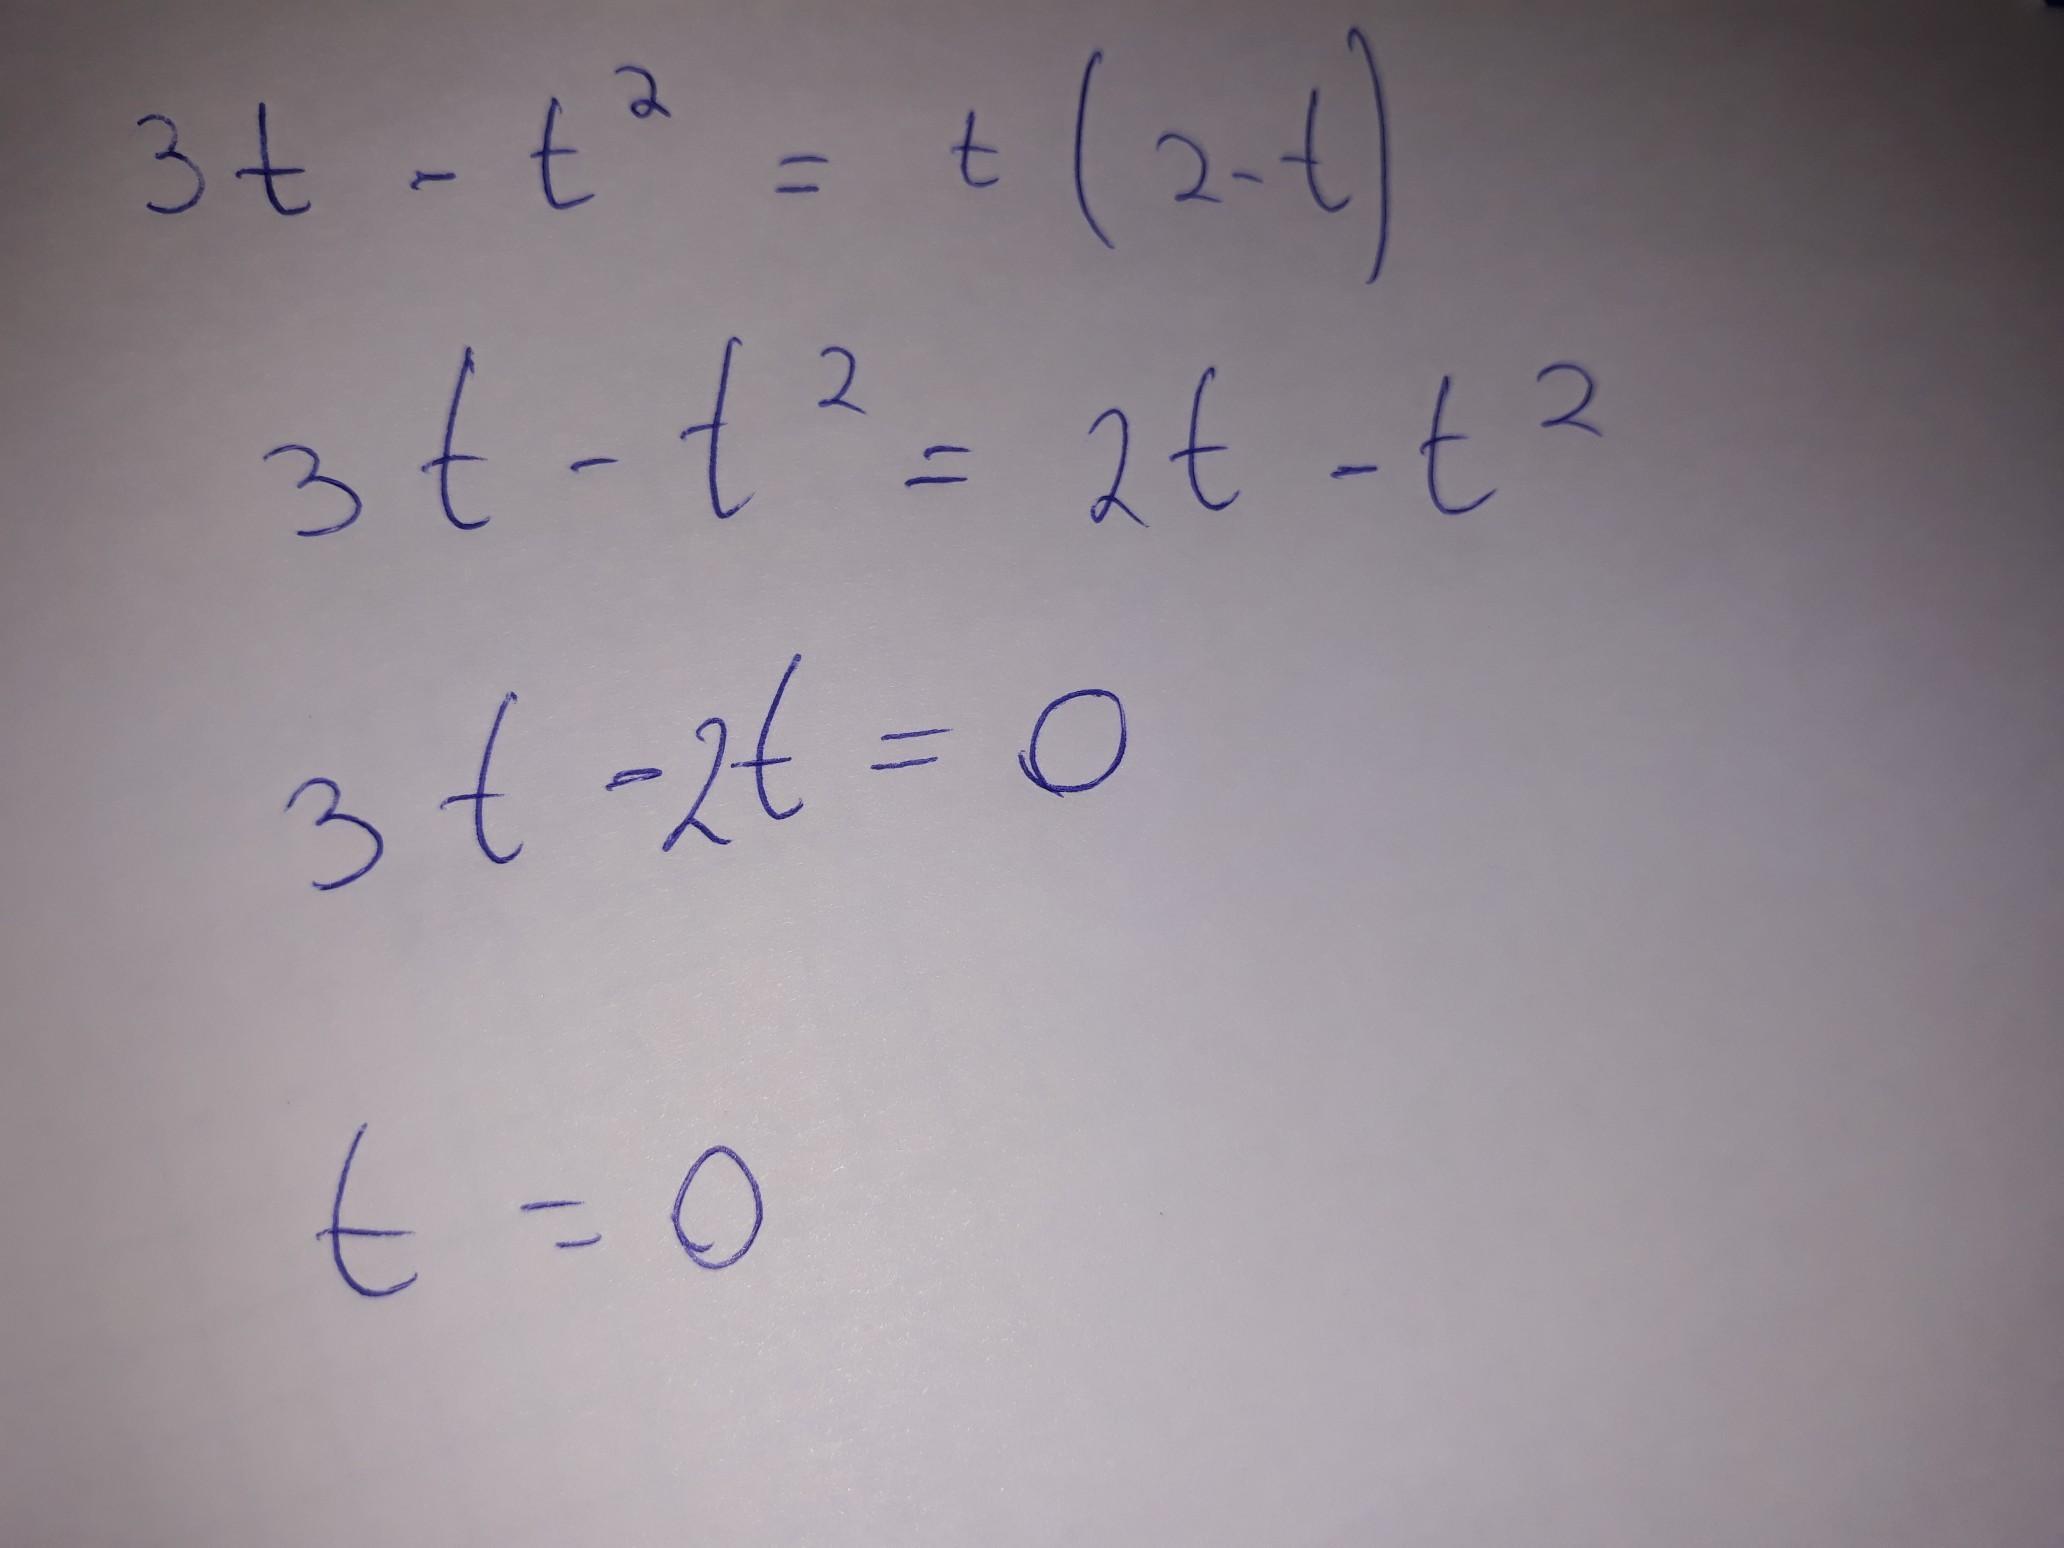 3t - t² = t(2-t)
3t - t² = 2t - t²
3t - 2t = 0
t = 0